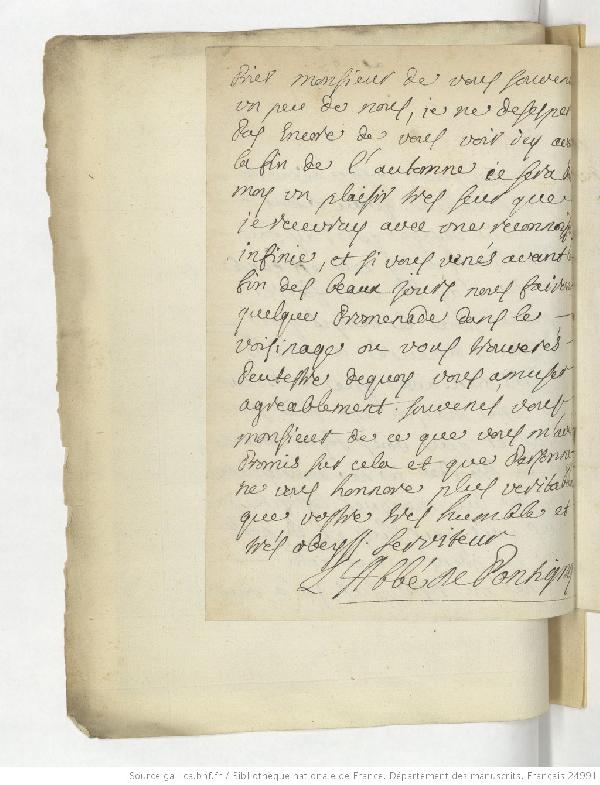 prier monsieur de vous souvenir
un peu de nous, je ne desesper
pas encore de vous voir icy av
la fin de l'automne ce sera
moy un plaisir tres seur que
je recevray avec une reconnoiss
infinie, et si vous venés avant
fin des beaux jours nous fairons
quelque promenade dans le
voisinage ou vous trouverés
peutestre dequoy vous amuser
agreablement. souvenes vous
monsieur de ce que vous m'av
promis sur cela et que personne
ne vous honnore plus veritabl
que vostre tres humble et
trés obeyss. serviteur
L'Abbé de Pontigny
Source gallica.bnf.fr / Bibliothèque nationale de France. Département des manuscrits. Français 24991